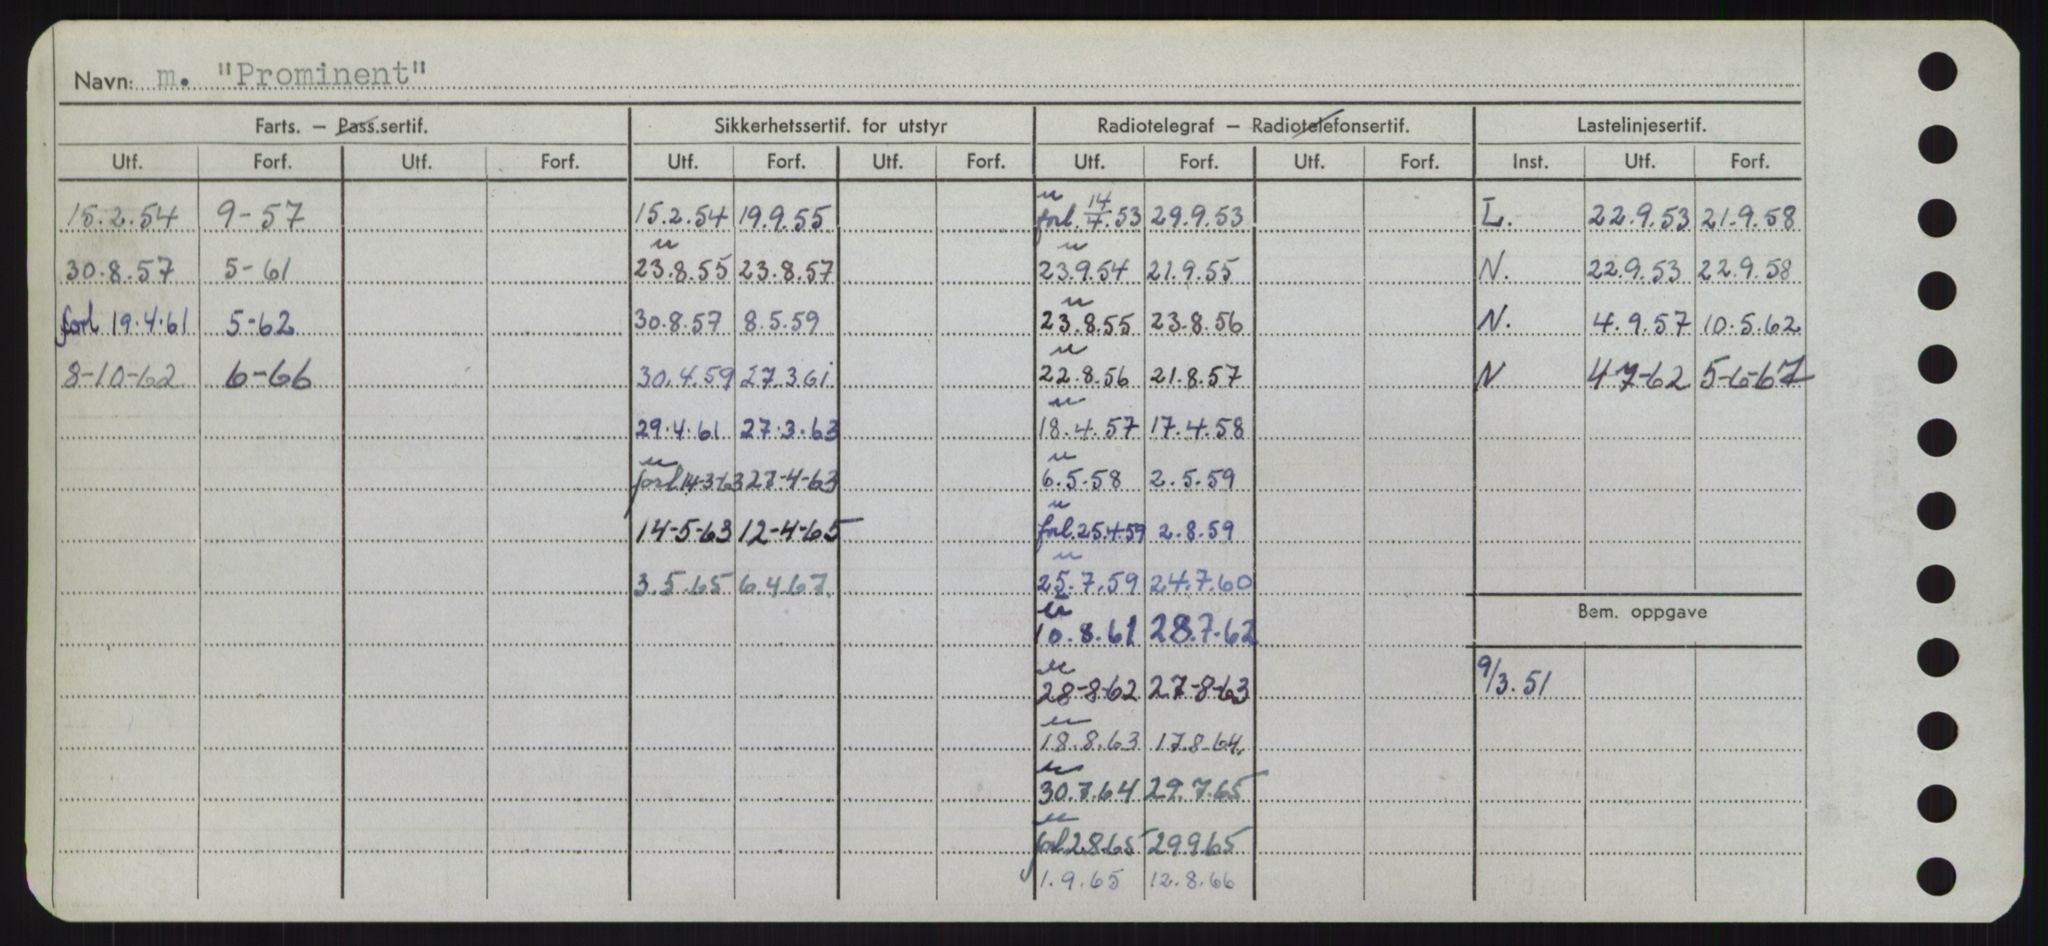 Navn: m. "Prominent"
Farts. – Pass.sertif. Sikkerhetssertif. for utstyr Radiotelegraf – Radiotelefonsertif. Lastelinjesertif.
Utf. Forf. Utf. Forf. Utf. Forf. Utf. Forf. Utf. Forf. Utf. Forf. Inst. Utf. Forf.
15.2.54 9-57 15.2.54 19.9.55 u forl. 14/7.53 29.9.53 L. 22.9.53 21.9.58
30.8.57 5-61 u 23.8.55 23.8.57 u 23.9.54 21.9.55 N. 22.9.53 22.9.58
forl 19.4.61 5-62 30.8.57 8.5.59 u 23.8.55 23.8.56 N. 4.9.57 10.5.62
8-10-62 6-66 30.4.59 27.3.61 u 22.8.56 21.8.57 N 4-7-62 5-6-67
29.4.61 27.3.63 u 18.4.57 17.4.58
u forl 14-3-63 27-4-63 u 6.5.58 2.5.59
14-5-63 12-4-65 u forl. 25.4.59 2.8.59
3.5.65 6.4.67. u 25.7.59 24.7.60
Bem. oppgave
u 10.8.61 28.7.62
9/3.51
u 28-8-62 27-8-63
u 18.8.63 17.8.64.
u 30.7.64 29.7.65
u forl 2.8.65 29.9.65
1.9.65 12.8.66